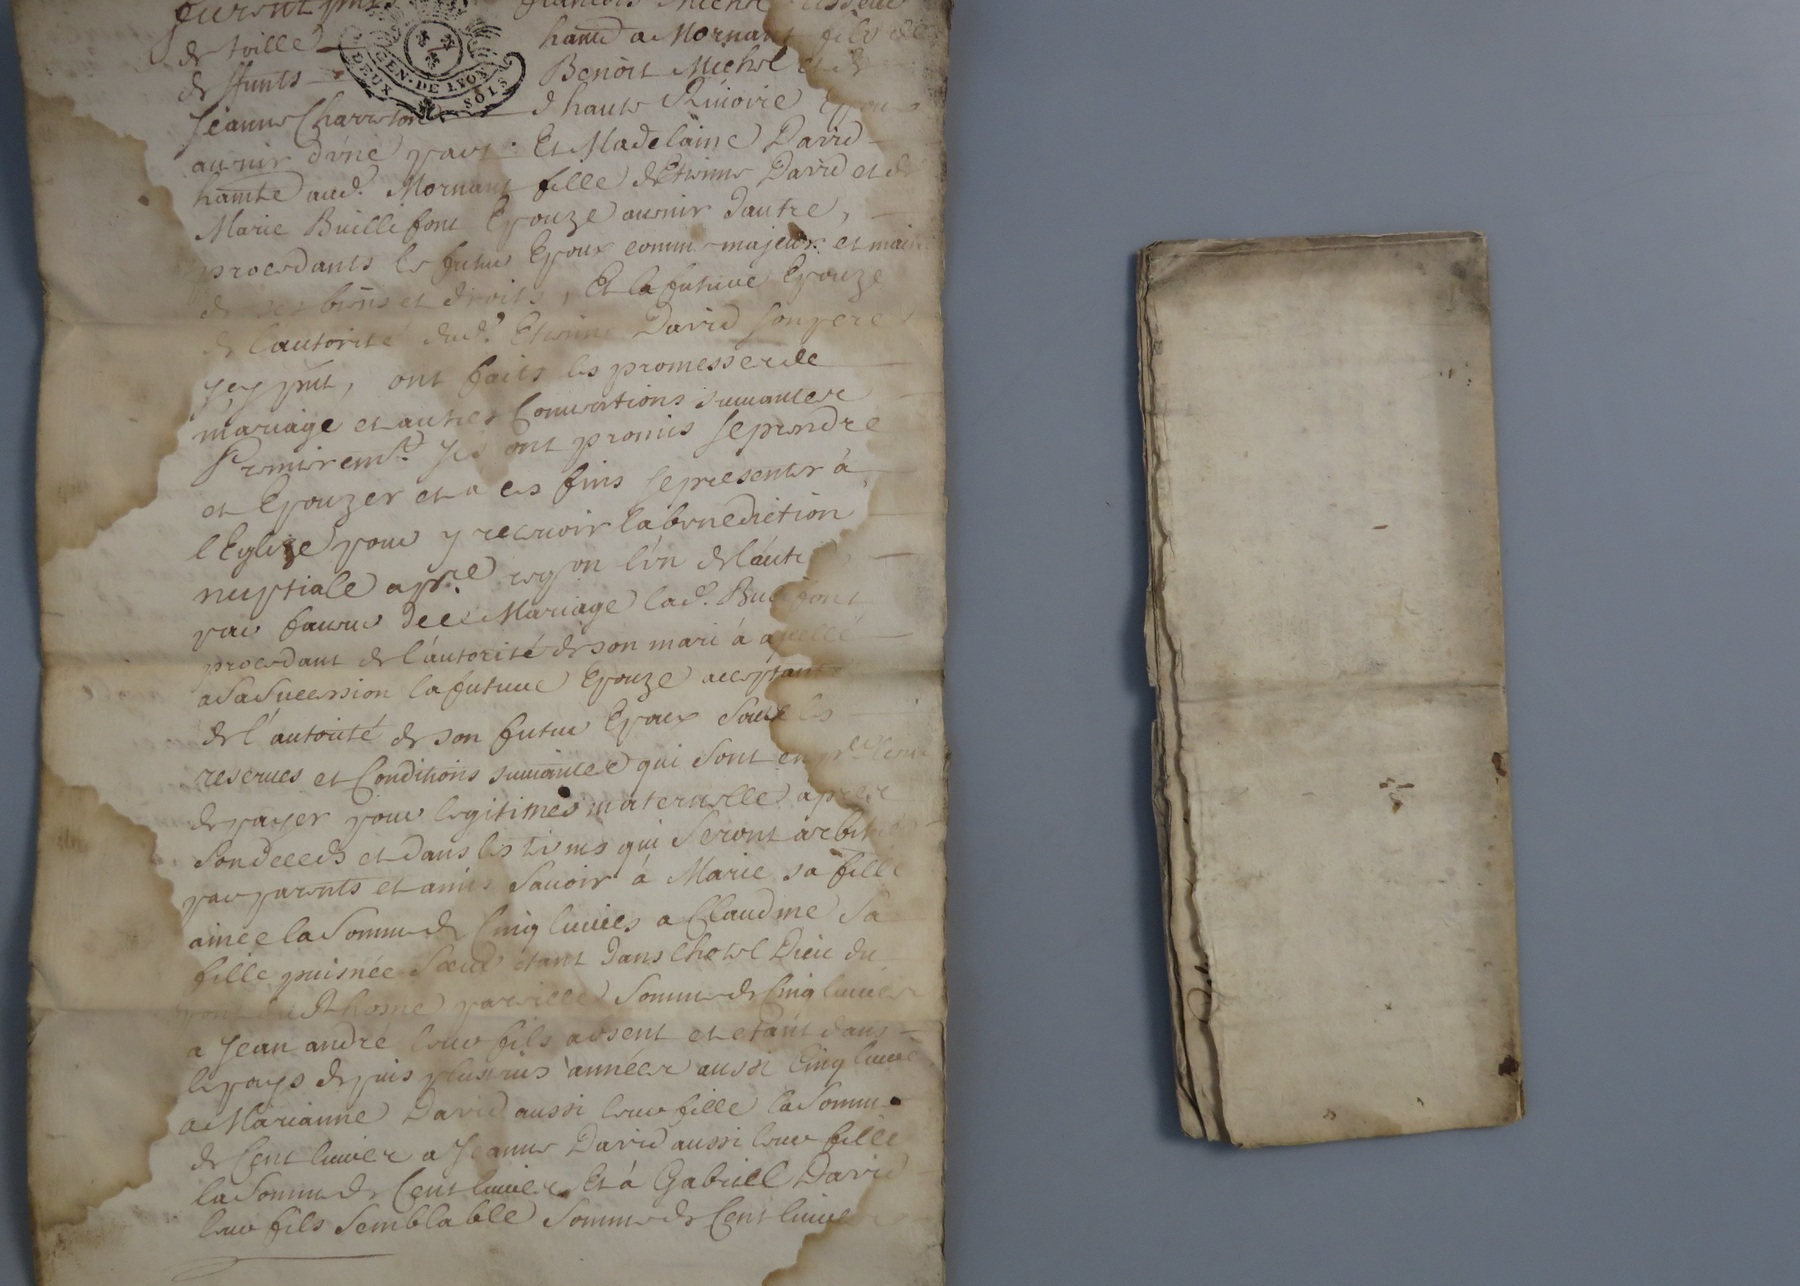 furent pnts François Michel tisseur
de toille habit a Mornant fils de
GEN. DE LYON
DEUX SOLS
deffunts Benoit Michel et de
Jeanne Charreton d haute Rivoire Epoux
auenir d'vne part Et Madelaine David
habitte aud. Mornant fille d'Etienne David et de
Marie Buillifont Epouze auenir dautre,
procedants le futur Epoux comme majeur et maitre
de ses biens et droits, Et la future Epouze
de l'autorité dud. Etienne David son pere
jcy pnt, ont faits les promesses de
mariage et autres Conuentions suiuantes
Premieremt. Jls ont promis se prendre
et Epouzer et a ces fins se presenter à
l'Eglize pour y receuoir la benediction
nuptiale apr. req on l'vn de l'autre
par faueur de ce Mariage lad. Buillifont
procedant de l'autorité de son mari à
a sa sucession la future Epouze acceptante
de l'autorité de son futur Epoux sous les
reserues et Conditions suiuantes qui sont en
de payer pour legitimes maternelle apres
son deceds et dans les termes qui seront arbitrés
par parents et amis Sauoir à Marie sa fille
ainée la somme de Cinq liures a Claudine sa
fille puisnée Soeur etant dans l hotel Dieu du
pont du Rhosne pareille somme de Cinq liures
a Jean andré leur fils absent et etant dans
le pays depuis plusieurs années aussi Cinq liures
a Marianne David aussi leur fille la somme
de Cent liures a Jeanne David aussi leur fille
la somme de Cent liures Et á Gabriel David
leur fils semblable somme de Cent liures